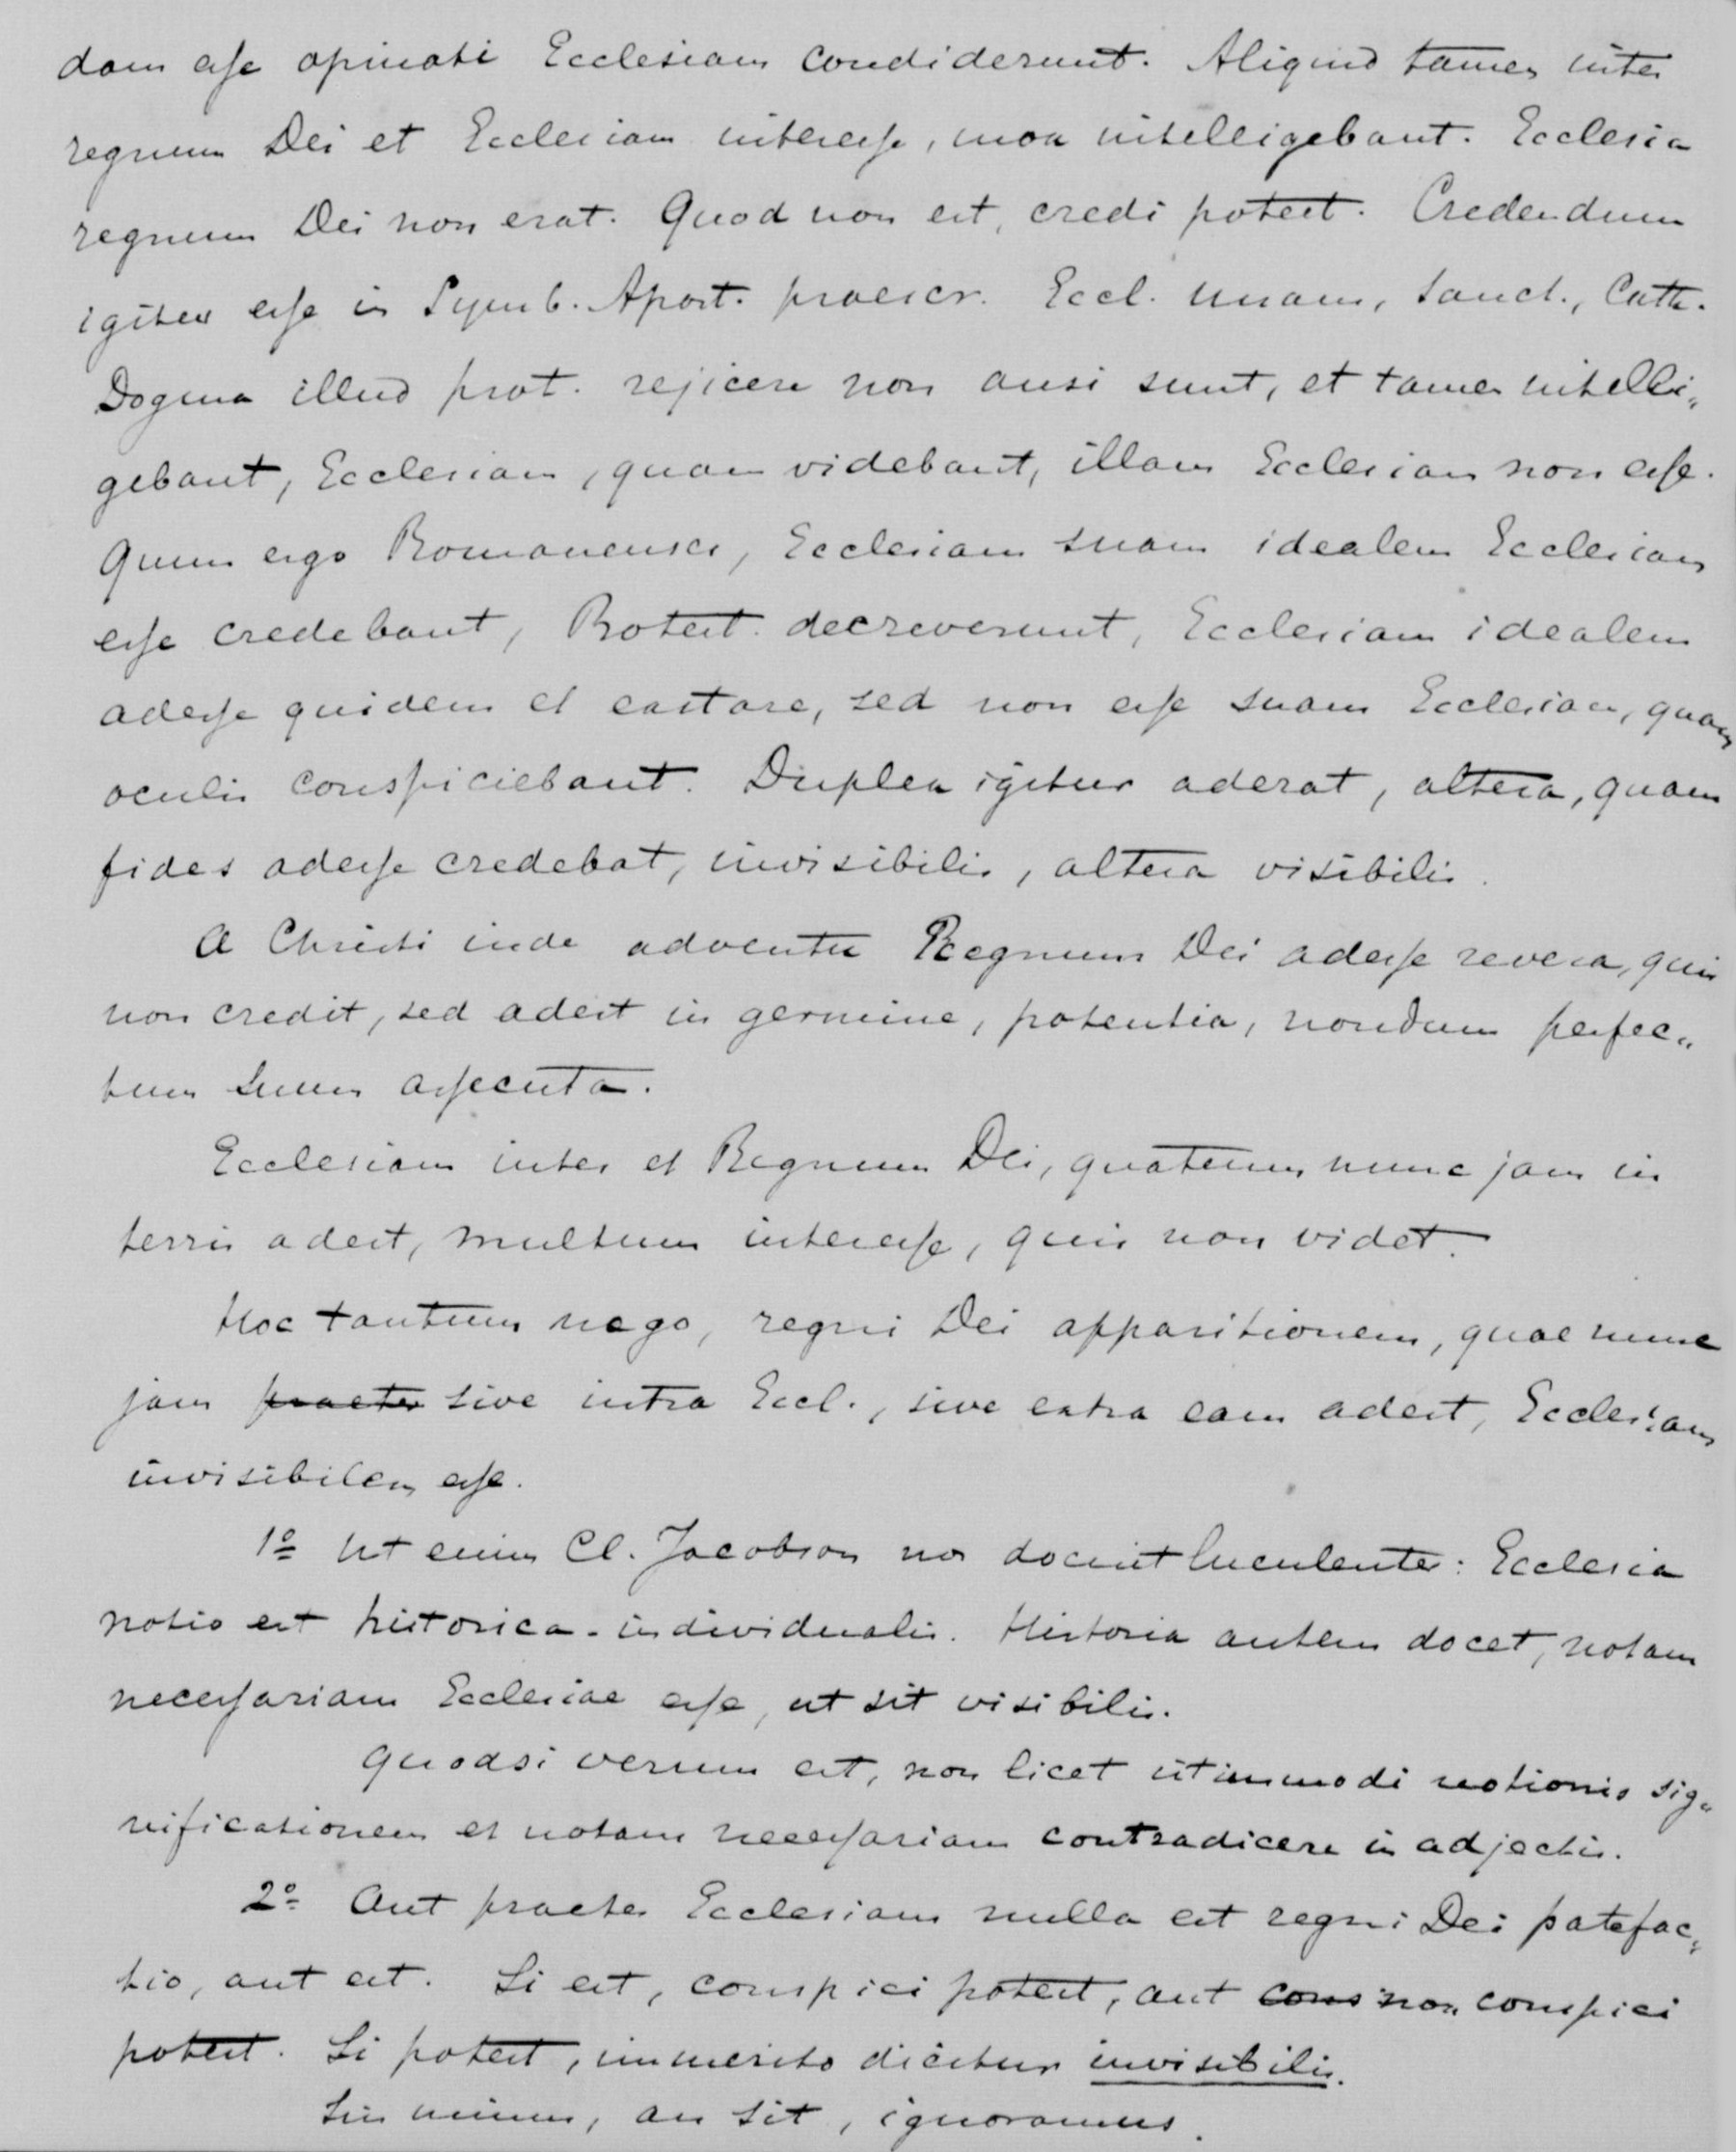 dam esse opinati Ecclesiam condiderunt. Aliquid tamen inter
regnum Dei et Ecclesiam interesse, mox intelligebant. Ecclesia
regnum Dei non erat. Quod non est, credi potest. Credendum
igitur esse in Symb. Apost. praescr. Eccl. unam, sanct., Cath.
Dogma illud prot. rejicere non ausi sunt, et tamen intelli„
gebant, Ecclesiam, quam videbant, illam Ecclesiam non esse.
Quum ergo Romanenses, Ecclesiam suam idealem Ecclesiam
esse credebant, Protest. decreverunt, Ecclesiam idealem
adesse quidem et exstare, sed non esse suam Ecclesiam, quam
oculis conspiciebant. Duplex igitur aderat, altera, quam
fides adesse credebat, invisibilis, altera visibilis.
A Christi inde adventu Regnum Dei adesse revera, quis
non credit, sed adest in germine, potentia, nondum perfec„
tum suum assecuta.
Ecclesiam inter et Regnum Dei, quatenus nunc jam in
terris adest, multum interesse, quis non videt.
Hoc tantum nego, regni Dei apparitionem, quae nunc
jam praeter sive intra Eccl., sive extra eam adest, Ecclesiam
invisibilem esse.
1º Ut enim Cl. Jacobson nos docuit luculenter: Ecclesia
notio est historica-individualis. Historia autem docet, notam
necessariam Ecclesiae esse, ut sit visibilis.
Quodsi verum est, non licet notionis sig„
nificationem et notam necessariam contradicere in adjectis.
2º Aut praeter Ecclesiam nulla est regni Dei patefac„
tio, aut est. Si est, conspici potest, aut cons non conspici
potest. Si potest, immerito dicitur invisibilis.
Sin minus, an sit, ignoramus.